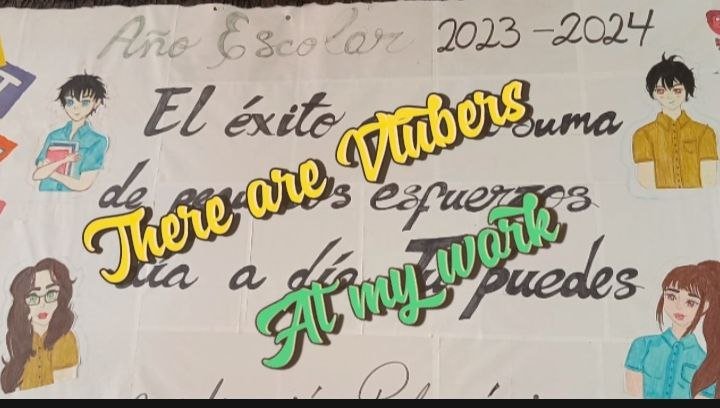 Año Escolar 2023-2024
El éxito suma
de pequeños esfuerzos
día a día Tu puedes
There are Vtubers
At my work